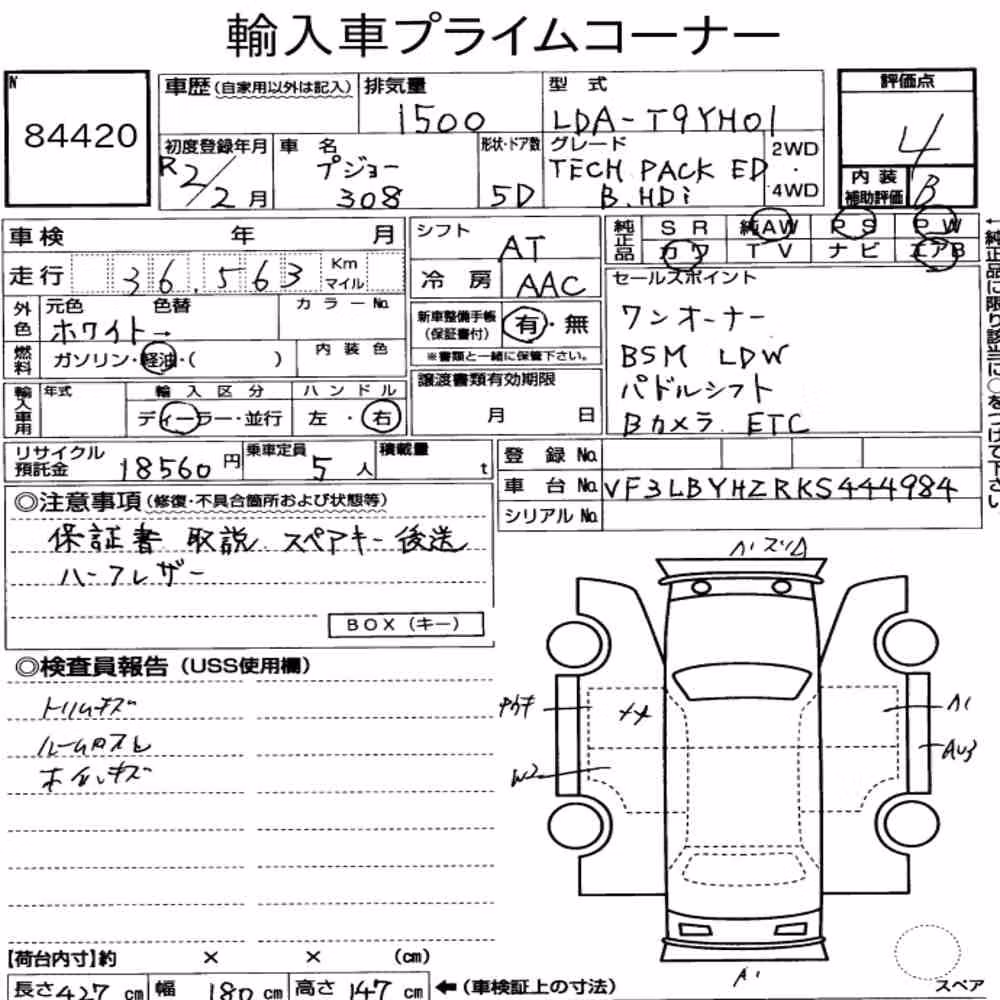 輸入車プライムコーナー
N
84420
車歴(自家用以外は記入)
排気量
1500
型式
LDA-T9YH01
評価点
4
初度登録年月
R2/2月
車名
プジョー
308
形状・ドア数
5D
グレード
TECH PACK ED
B.HDi
2WD
・
4WD
内装
補助評価
B
車検 年 月
シフト
AT
純正品
SR 純AW PS PW
カワ TV ナビ エアB
走行 36,563 Km
マイル
冷房 AAC
セールスポイント
ワンオーナー
BSM LDW
パドルシフト
Bカメラ ETC
外色
元色 色替
カラーNo.
ホワイト→
新車整備手帳
(保証書付)
有・無
※書類と一緒に保管下さい。
燃料
ガソリン・軽油・( )
内装色
譲渡書類有効期限
月 日
輸入車用
年式
輸入区分
ディーラー・並行
ハンドル
左・右
←純正品に限り該当に○をつけて下さい。
リサイクル
預託金
18560円
乗車定員
5人
積載量
t
登録No.
車台No. VF3LBYHZRKS444984
シリアルNo.
◎注意事項(修復・不具合箇所および状態等)
保証書 取説 スペアキー後送
ハーフレザー
BOX(キー)
◎検査員報告(USS使用欄)
トリムキズ
ホイルキズ
A1
W2
A1
スペア
【荷台内寸】約 × × (cm)
長さ427cm 幅180cm 高さ147cm ←(車検証上の寸法)